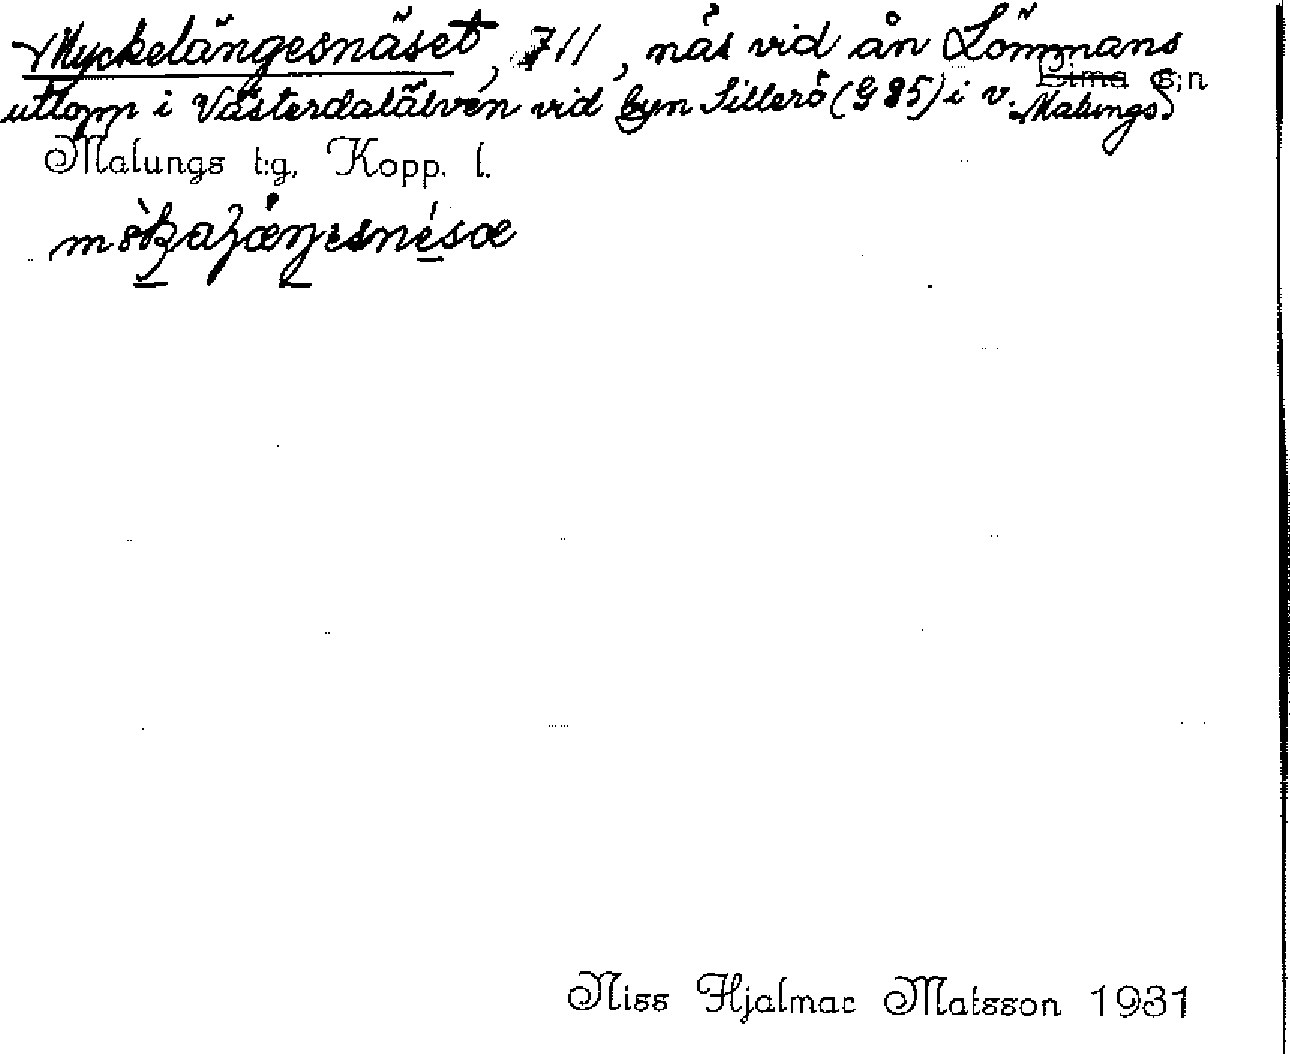 Myckelängesnäset, 711, näs vid ån Lömmans
utlopp i Västerdalälven vid byn Sillerö (G 85) i v. Malungs s:n
Malungs t:g, Kopp. l.
Niss Hjalmar Matsson 1931